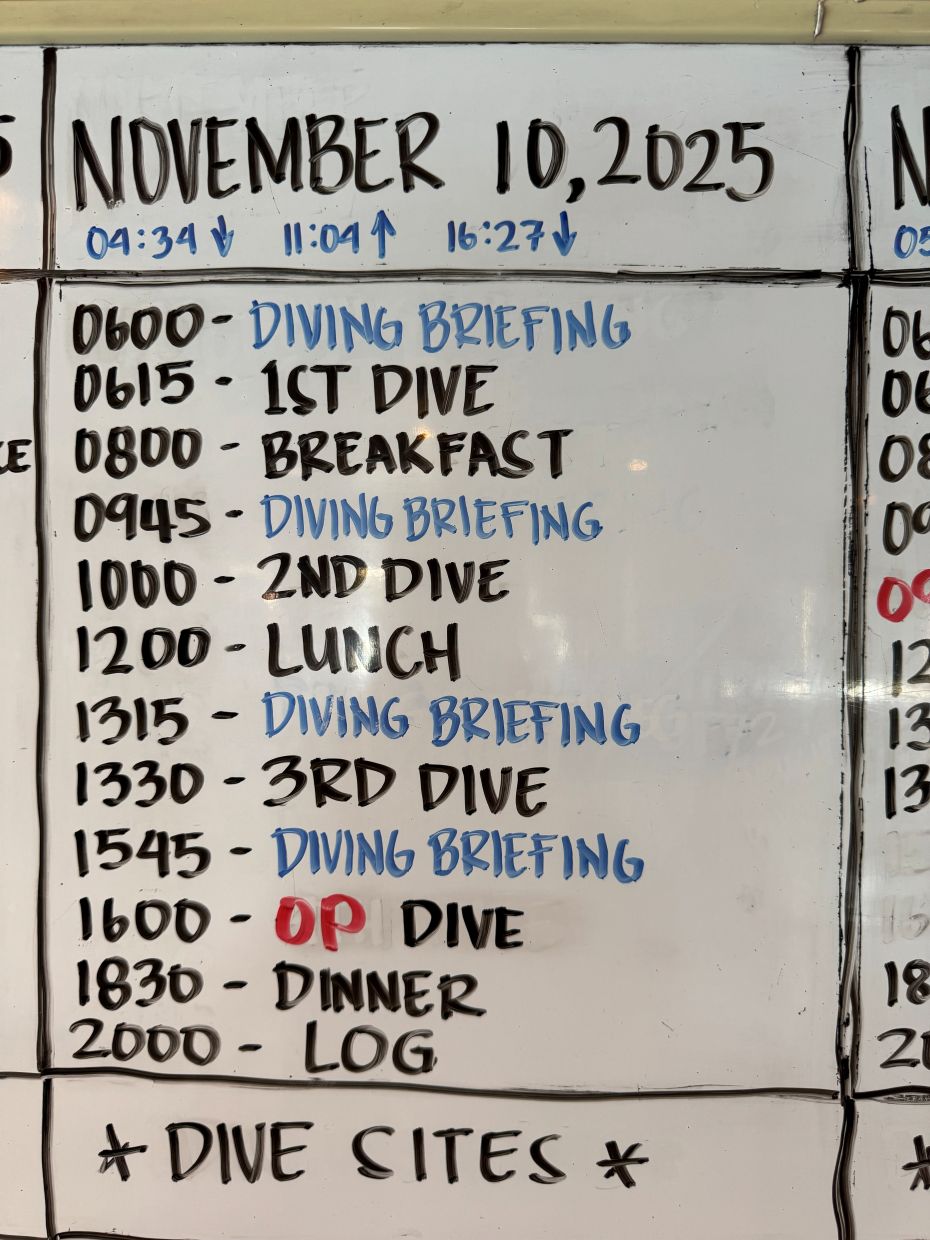 NOVEMBER 10,2025
04:34↓ 11:04↑ 16:27↓
0600- DIVING BRIEFING
0615 - 1ST DIVE
0800 - BREAKFAST
0945 - DIVING BRIEFING
1000 - 2ND DIVE
1200 - LUNCH
1315 - DIVING BRIEFING
1330 - 3RD DIVE
1545 - DIVING BRIEFING
1600 - OP DIVE
1830 - DINNER
2000 - LOG
* DIVE SITES *